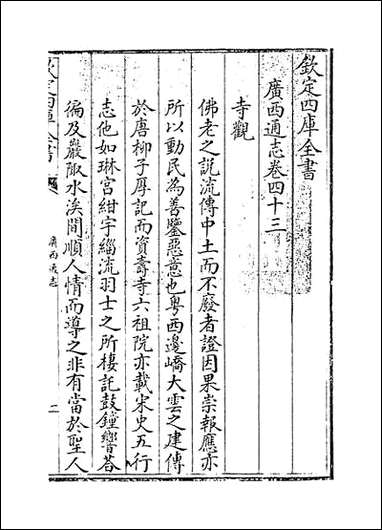 欽定四庫全書
廣西通志卷四十三
寺觀
佛老之説流傳中土而不廢者證因果崇報應亦
所以動民為善鑒惡意也粤西邊嶠大雲之建傳
於唐柳子厚記而資壽寺六祖院亦載宋史五行
志他如琳宮紺宇緇流羽士之所棲託鼓鐘響荅
徧及巖陬水溪間順人情而導之非有當於聖人
欽定四庫全書
廣西通志